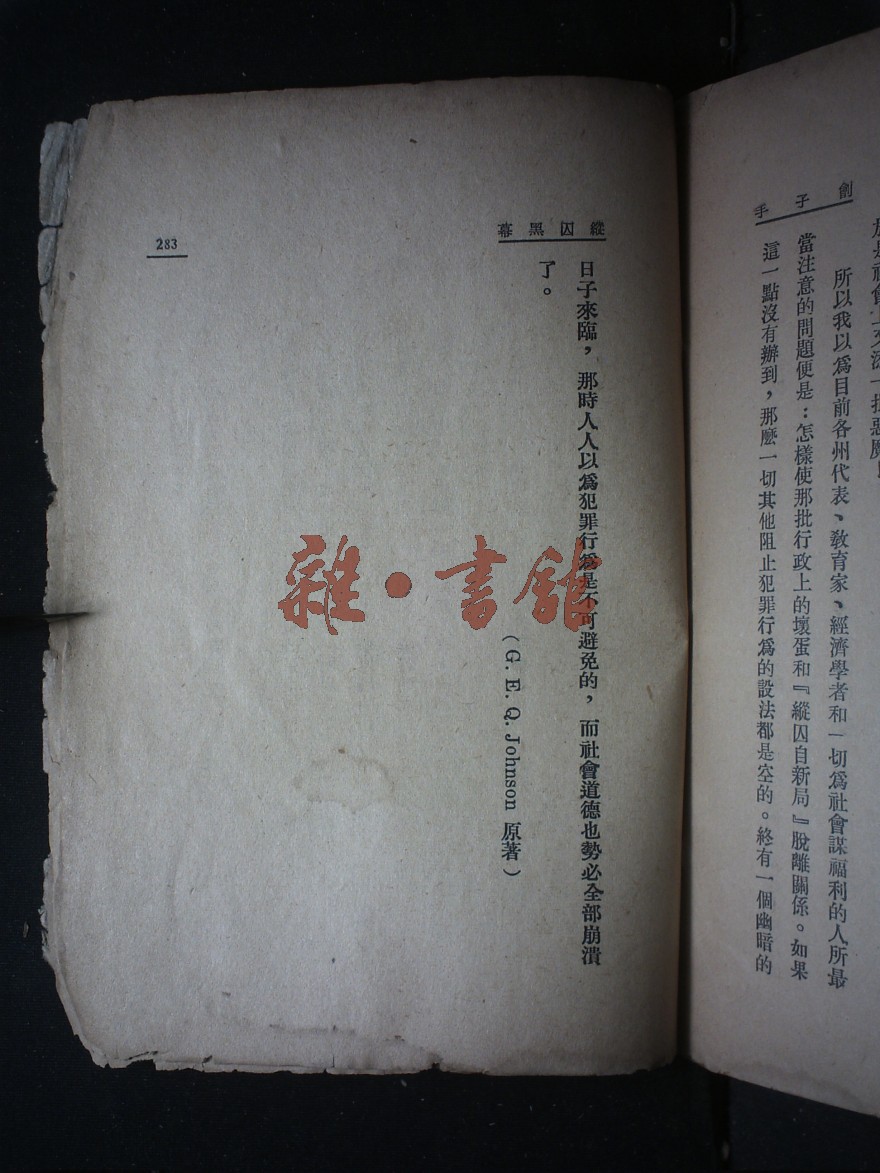 劊子手
所以我以爲目前各州代表、敎育家、經濟學者和一切爲社會謀福利的人所最
當注意的問題便是：怎樣使那批行政上的壞蛋和『縱囚自新局』脫離關係。如果
這一點沒有辦到，那麽一切其他阻止犯罪行爲的設法都是空的。終有一個幽暗的
縱囚黑幕
日子來臨，那時人人以爲犯罪行爲是不可避免的，而社會道德也勢必全部崩潰
了。
（G. E. Q. Johnson 原著）
283
雜·書館